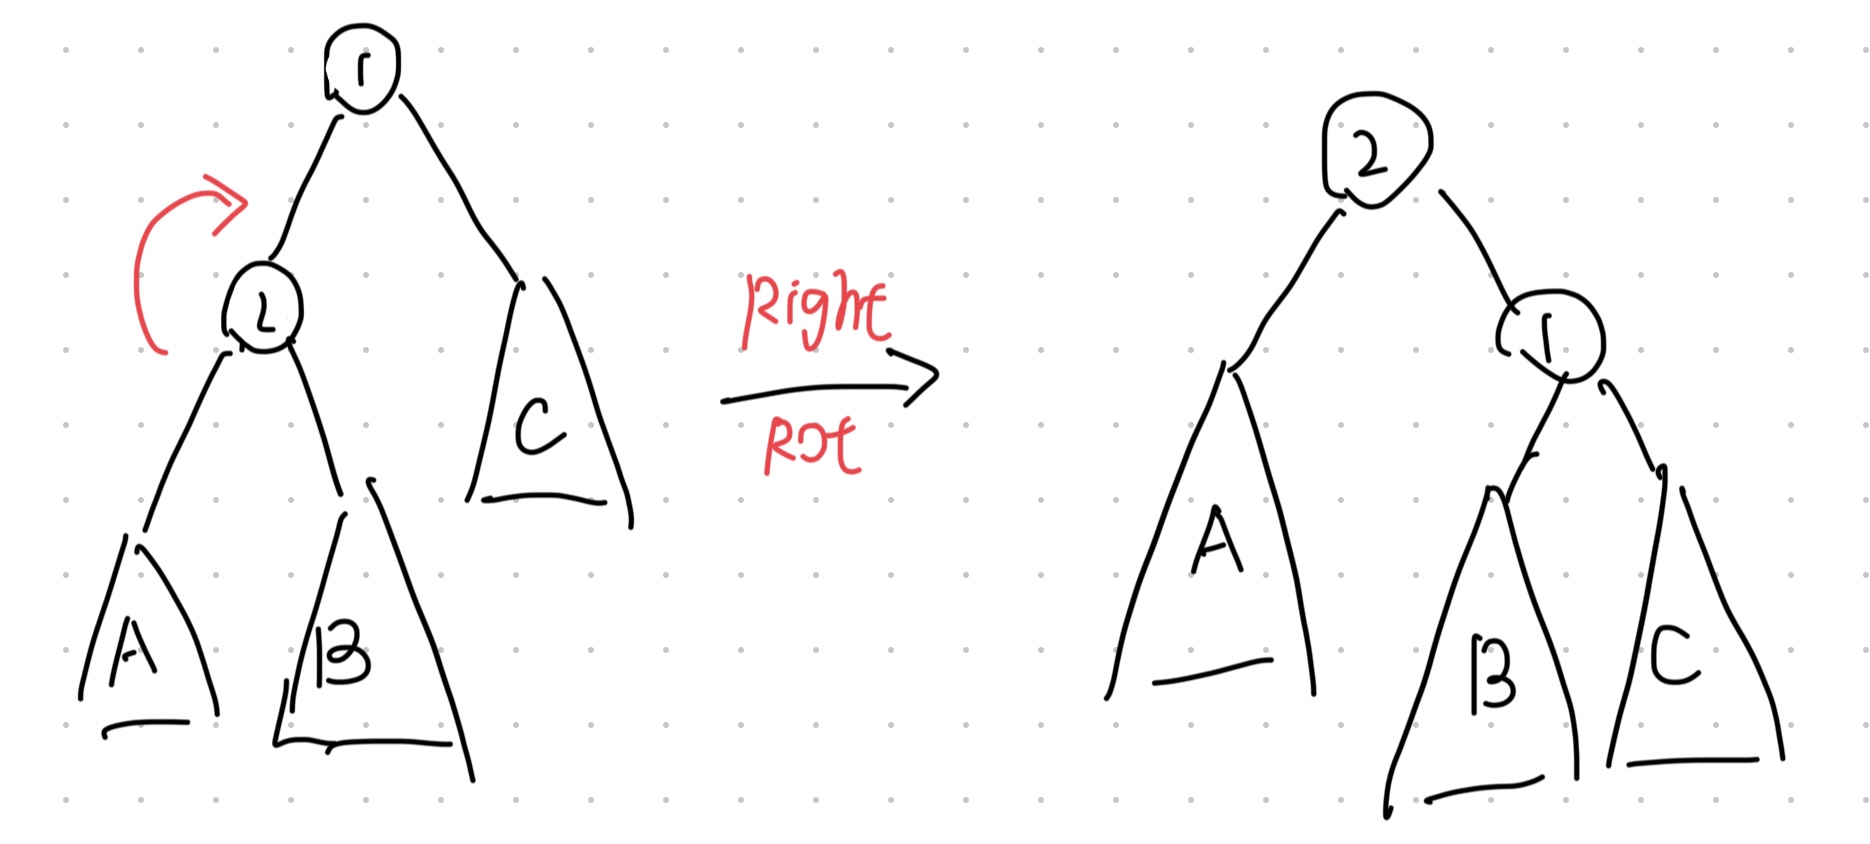 1
2
C
A
B
Right
Rot
2
1
A
B
C